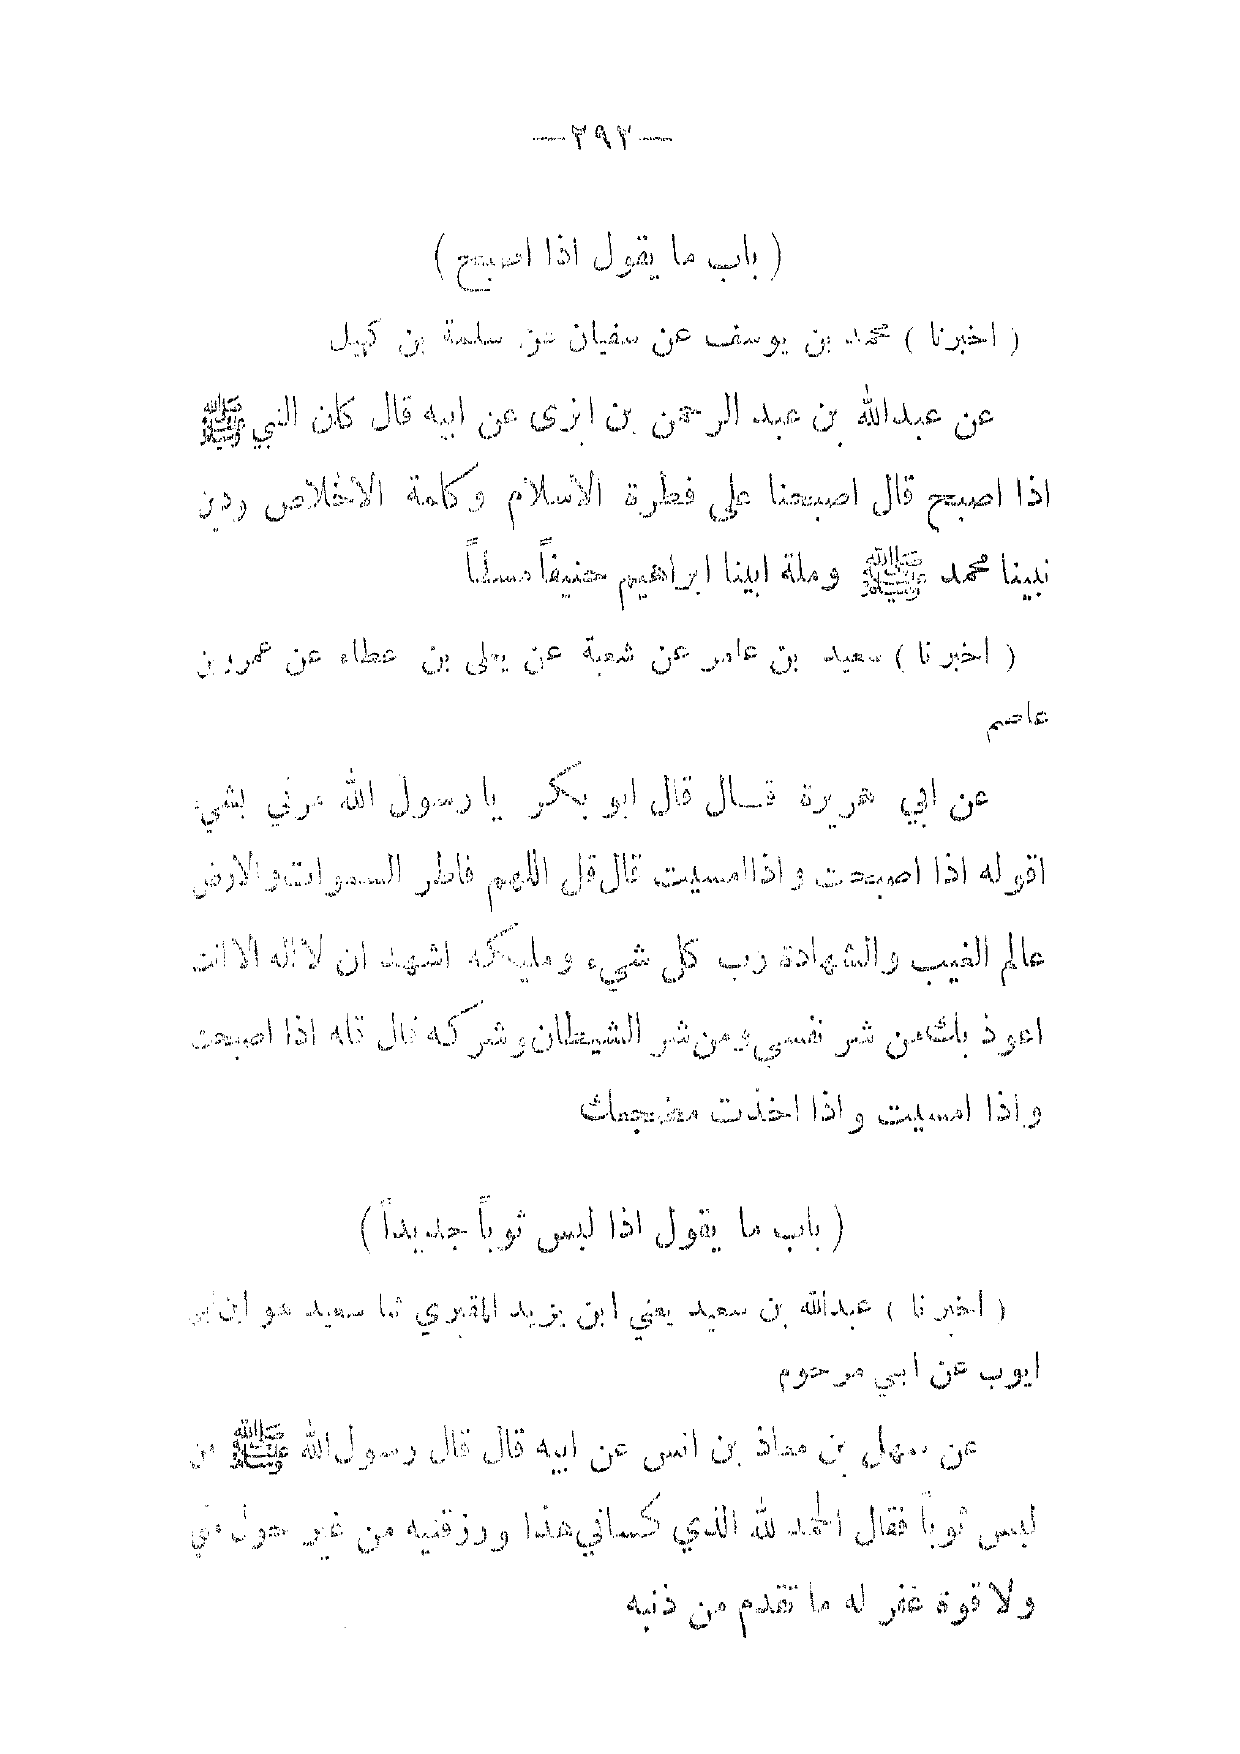 —٢٩٢—
( باب ما يقول اذا اصبح )
( اخبرنا ) محمد بن يوسف عن سفيان عن سلمة بن كهيل
عن عبدالله بن عبد الرحمن بن ابزى عن ابيه قال كان النبي ﷺ
اذا اصبح قال اصبحنا على فطرة الاسلام وكلمة الاخلاص ودين
نبينا محمد ﷺ وملة ابينا ابراهيم حنيفاً مسلماً
( اخبرنا ) سعيد بن عامر عن شعبة عن يعلى بن عطاء عن عمرو بن
عاصم
عن ابي هريرة قال قال ابو بكر يا رسول الله مرني بشيء
اقوله اذا اصبحت واذا امسيت قال قل اللهم فاطر السموات والارض
عالم الغيب والشهادة رب كل شيء ومليكه اشهد ان لا اله الا انت
اعوذ بك من شر نفسي ومن شر الشيطان وشركه قال قله اذا اصبحت
واذا امسيت واذا اخذت مضجعك
( باب ما يقول اذا لبس ثوباً جديداً )
( اخبرنا ) عبدالله بن سعيد يعني ابن يزيد المقبري ثنا سعيد هو ابن ابي
ايوب عن ابي مرحوم
عن سهل بن معاذ بن انس عن ابيه قال قال رسول الله ﷺ من
لبس ثوباً فقال الحمد لله الذي كساني هذا ورزقنيه من غير حول مني
ولا قوة غفر له ما تقدم من ذنبه